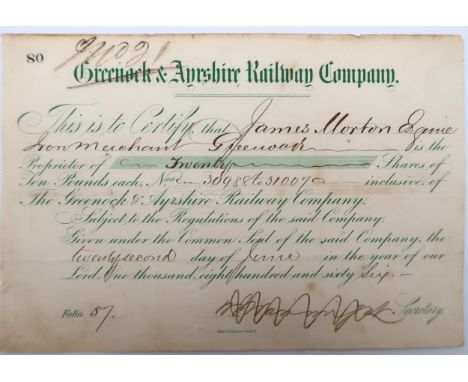 80
Greenock & Ayrshire Railway Company.
This is to Certify, that James Morton Esquire
Iron Merchant Greenock is the
Proprietor of Twenty Shares of
Ten Pounds each, Nos 30988 to 31007 inclusive of
The Greenock & Ayrshire Railway Company.
Subject to the Regulations of the said Company.
Given under the Common Seal of the said Company, the
twenty second day of June in the year of our
Lord, One thousand eight hundred and sixty Six
Folio 57. Secretary.